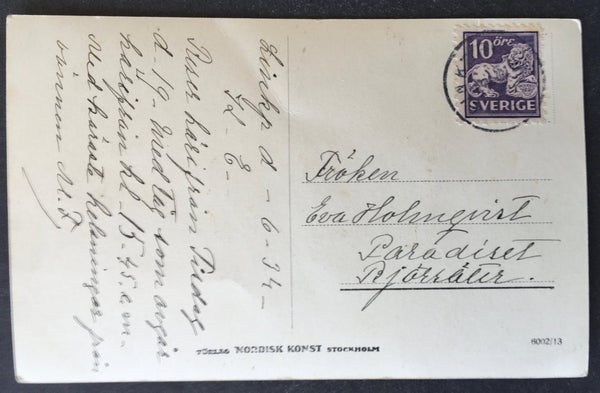 Linkp d - 6-34-
F.L. E-
Reser härifrån Tisdag
d. 19- Med Tåg som avgår
härifrån kl- 15-45. e.m-
Med kärasta helsningar från
vännen M. F.
10 ÖRE
SVERIGE
Fröken
Eva Holmqvist
Paradiset
Björsäter.
FÖRLAG NORDISK KONST STOCKHOLM
6002/13